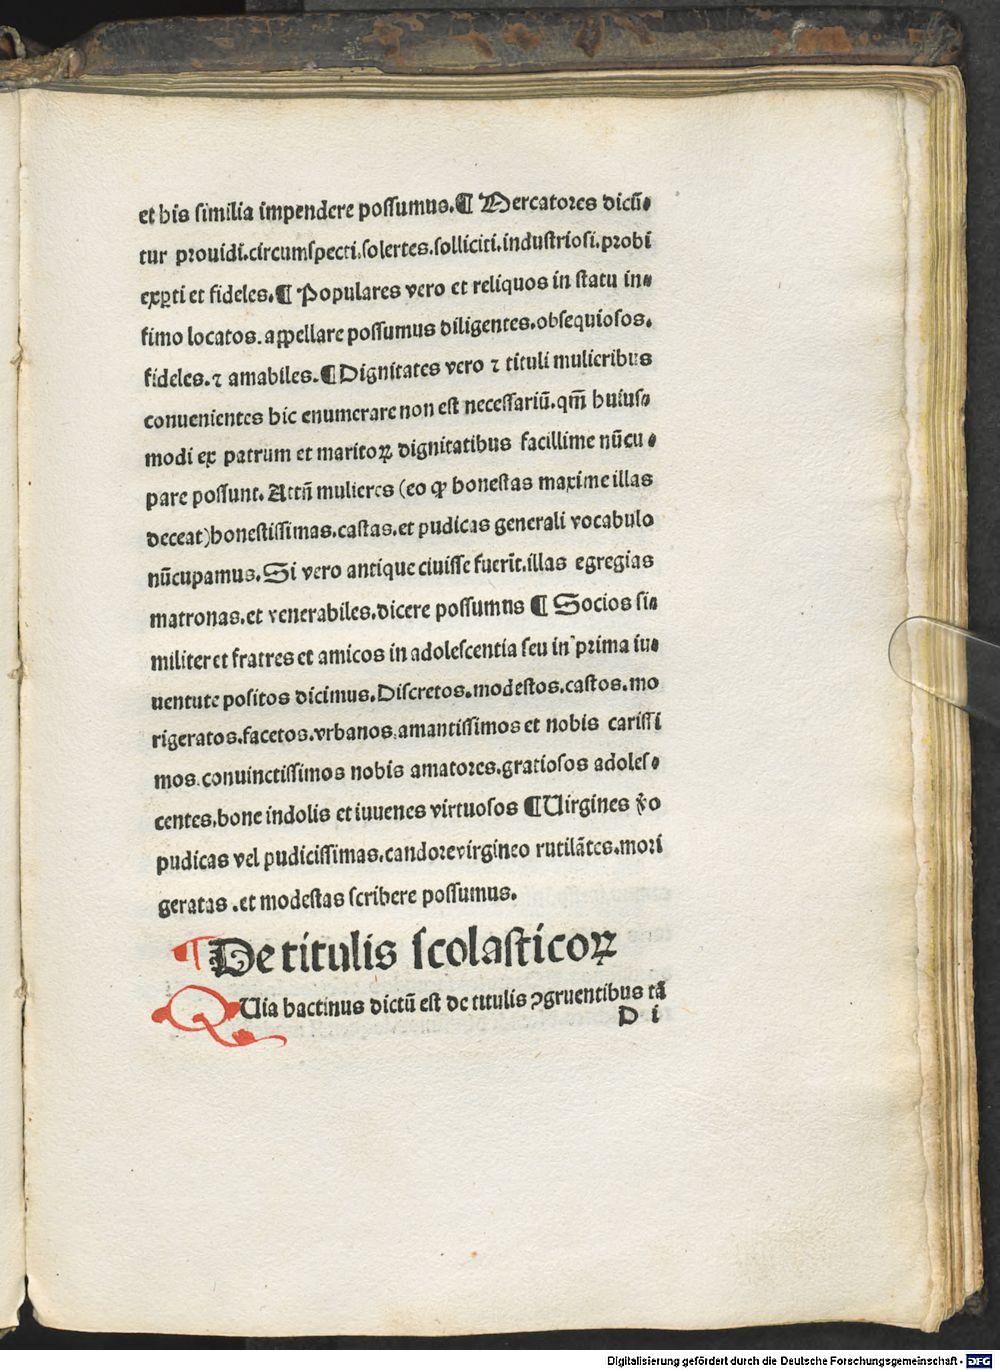 et his ſimilia impendere poſſumus.¶ Mercatores dicū⸗
tur prouidi.circumſpecti.ſolertes.ſolliciti.induſtrioſi.probi
exꝑti et fideles.¶ Populares vero et reliquos in ſtatu in⸗
fimo locatos.aꝓpellare poſſumus diligentes.obſequioſos.
fideles.⁊ amabiles.¶ Dignitates vero ⁊ tituli mulieribus
conuenientes hic enumerare non eſt neceſſariū.qm̄ huiuſ⸗
modi ex patrum et maritoꝝ dignitatibus facillime nūcu⸗
pare poſſunt. Attn̄ mulieres (eo ꝙ honeſtas maxime illas
deceat)honeſtiſſimas.caſtas.et pudicas generali vocabulo
nūcupamus. Si vero antique ciuiſſe fuerīt.illas egregias
matronas.et venerabiles.dicere poſſumus ¶ Socios ſi⸗
militer et fratres et amicos in adoleſcentia ſeu in prima iu⸗
uentute poſitos dicimus. Diſcretos.modeſtos.caſtos.mo
rigeratos.facetos.vrbanos.amantiſſimos et nobis cariſſi
mos.conuinctiſſimos nobis amatores.gratioſos adoleſ⸗
centes.bone indolis et iuuenes virtuoſos ¶ Uirgines v̄o
pudicas vel pudiciſſimas.candore virgineo rutilātes.mori
geratas .et modeſtas ſcribere poſſumus.
¶ De titulis ſcolaſticoꝝ
QUia hactinus dictū eſt de titulis ꝯgruentibus tā
D i
Digitalisierung gefördert durch die Deutsche Forschungsgemeinschaft - DFG